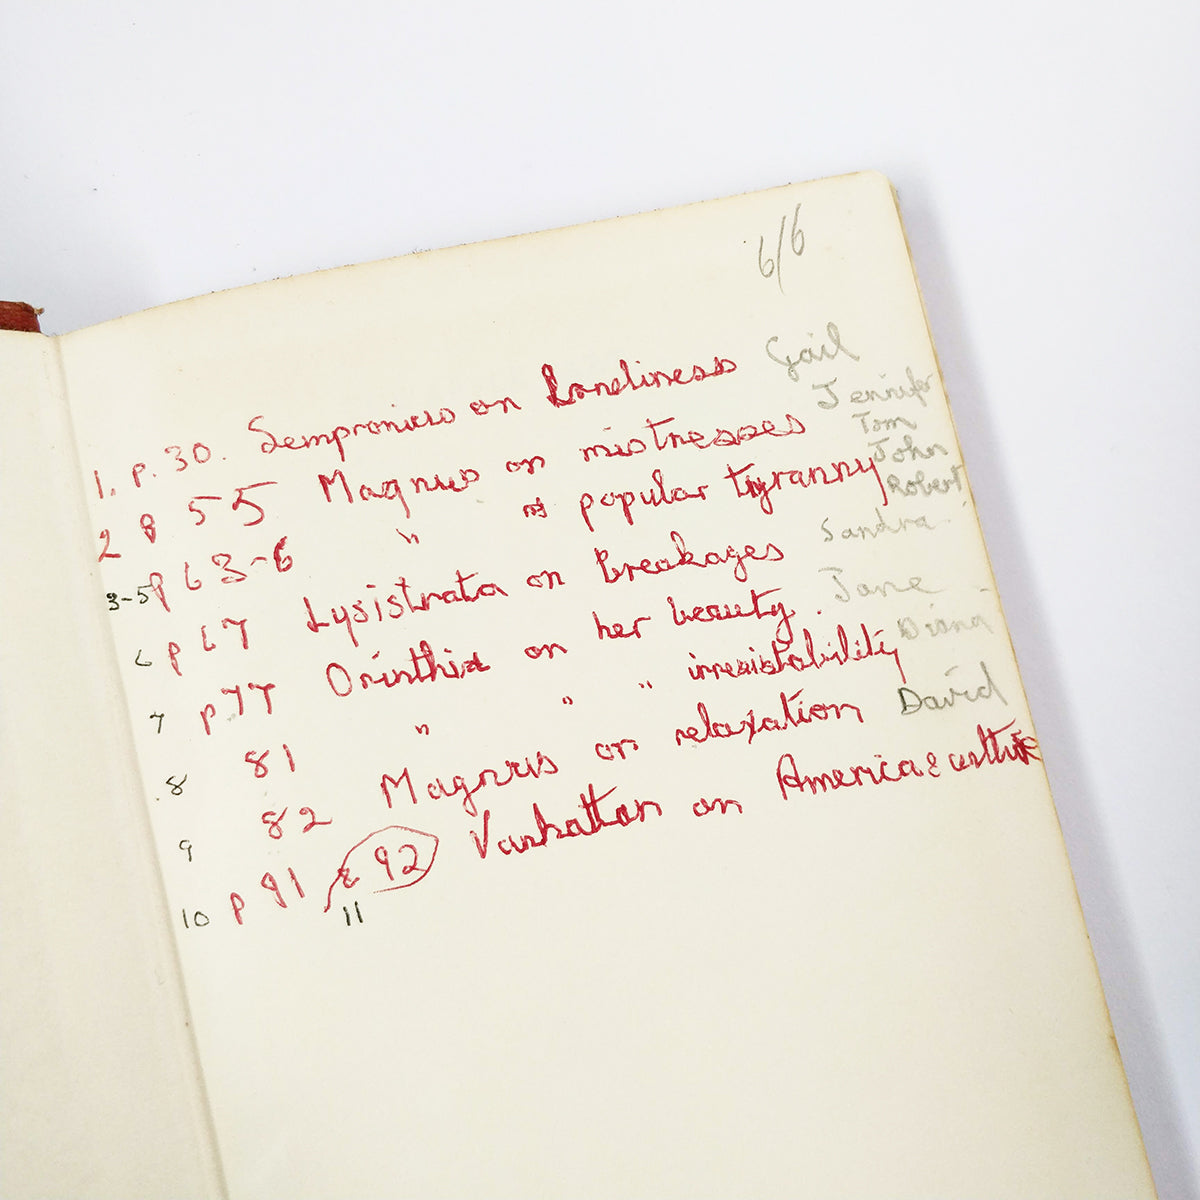 6/6
1. p. 30. Sempronius on Loneliness Gail
2 p 55 Magnus on mistresses Jennifer
Tom
John
3-5 p 63-6 " " popular tyranny Robert
6 p 67 Lysistrata on Breakages Sandra
7 p.77 Orinthia on her beauty. Jane
8 81 " " " irresistability Diana
9 82 Magnus on relaxation David
10 p 91 & 92 Vanhattan on America & culture
11